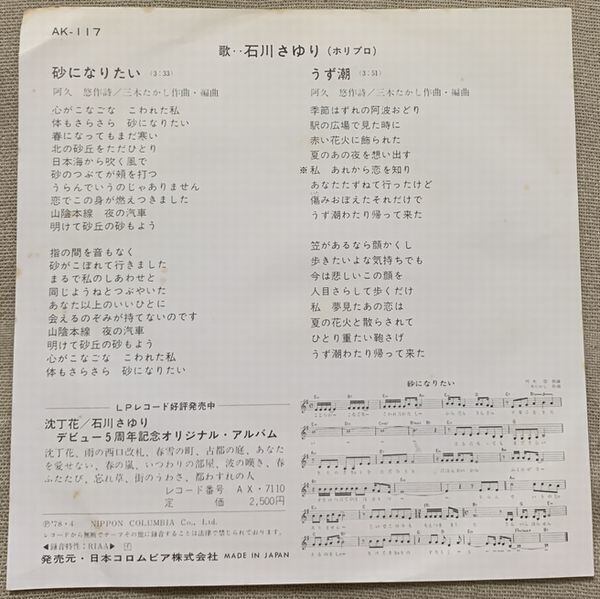 AK-117
歌‥石川さゆり(ホリプロ)
砂になりたい (3:33)
阿久 悠作詩/三木たかし作曲・編曲
心がこなごな こわれた私
体もさらさら 砂になりたい
春になってもまだ寒い
北の砂丘をただひとり
日本海から吹く風で
砂のつぶてが頰を打つ
うらんでいうのじゃありません
恋でこの身が燃えつきました
山陰本線 夜の汽車
明けて砂丘の砂もよう
指の間を音もなく
砂がこぼれて行きました
まるで私のしあわせと
同じようねとつぶやいた
あなた以上のいいひとに
会えるのぞみが持てないのです
山陰本線 夜の汽車
明けて砂丘の砂もよう
心がこなごな こわれた私
体もさらさら 砂になりたい
うず潮 (3:51)
阿久 悠作詩/三木たかし作曲・編曲
季節はずれの阿波おどり
駅の広場で見た時に
赤い花火に飾られた
夏のあの夜を想い出す
※私 あれから恋を知り
あなたたずねて行ったけど
傷みおぼえたそれだけで
うず潮わたり帰って来た
笠があるなら顔かくし
歩きたいよな気持ちでも
今は悲しいこの顔を
人目さらして歩くだけ
私 夢見たあの恋は
夏の花火と散らされて
ひとり重たい鞄さげ
うず潮わたり帰って来た
LPレコード好評発売中
沈丁花/石川さゆり
デビュー5周年記念オリジナル・アルバム
沈丁花、雨の西口改札、春雪の町、古都の庭、あなた
を愛せない、春の嵐、いつわりの部屋、波の嘆き、春
ふたたび、忘れ草、街のうわさ、都わすれの人
レコード番号 AX・7110
定 価 2,500円
Ⓟ'78・4 NIPPON COLUMBIA Co., Ltd.
レコードから無断でテープその他に録音することは法律で禁じられております。
◀録音特性:RIAA▶
発売元・日本コロムビア株式会社 MADE IN JAPAN
砂になりたい